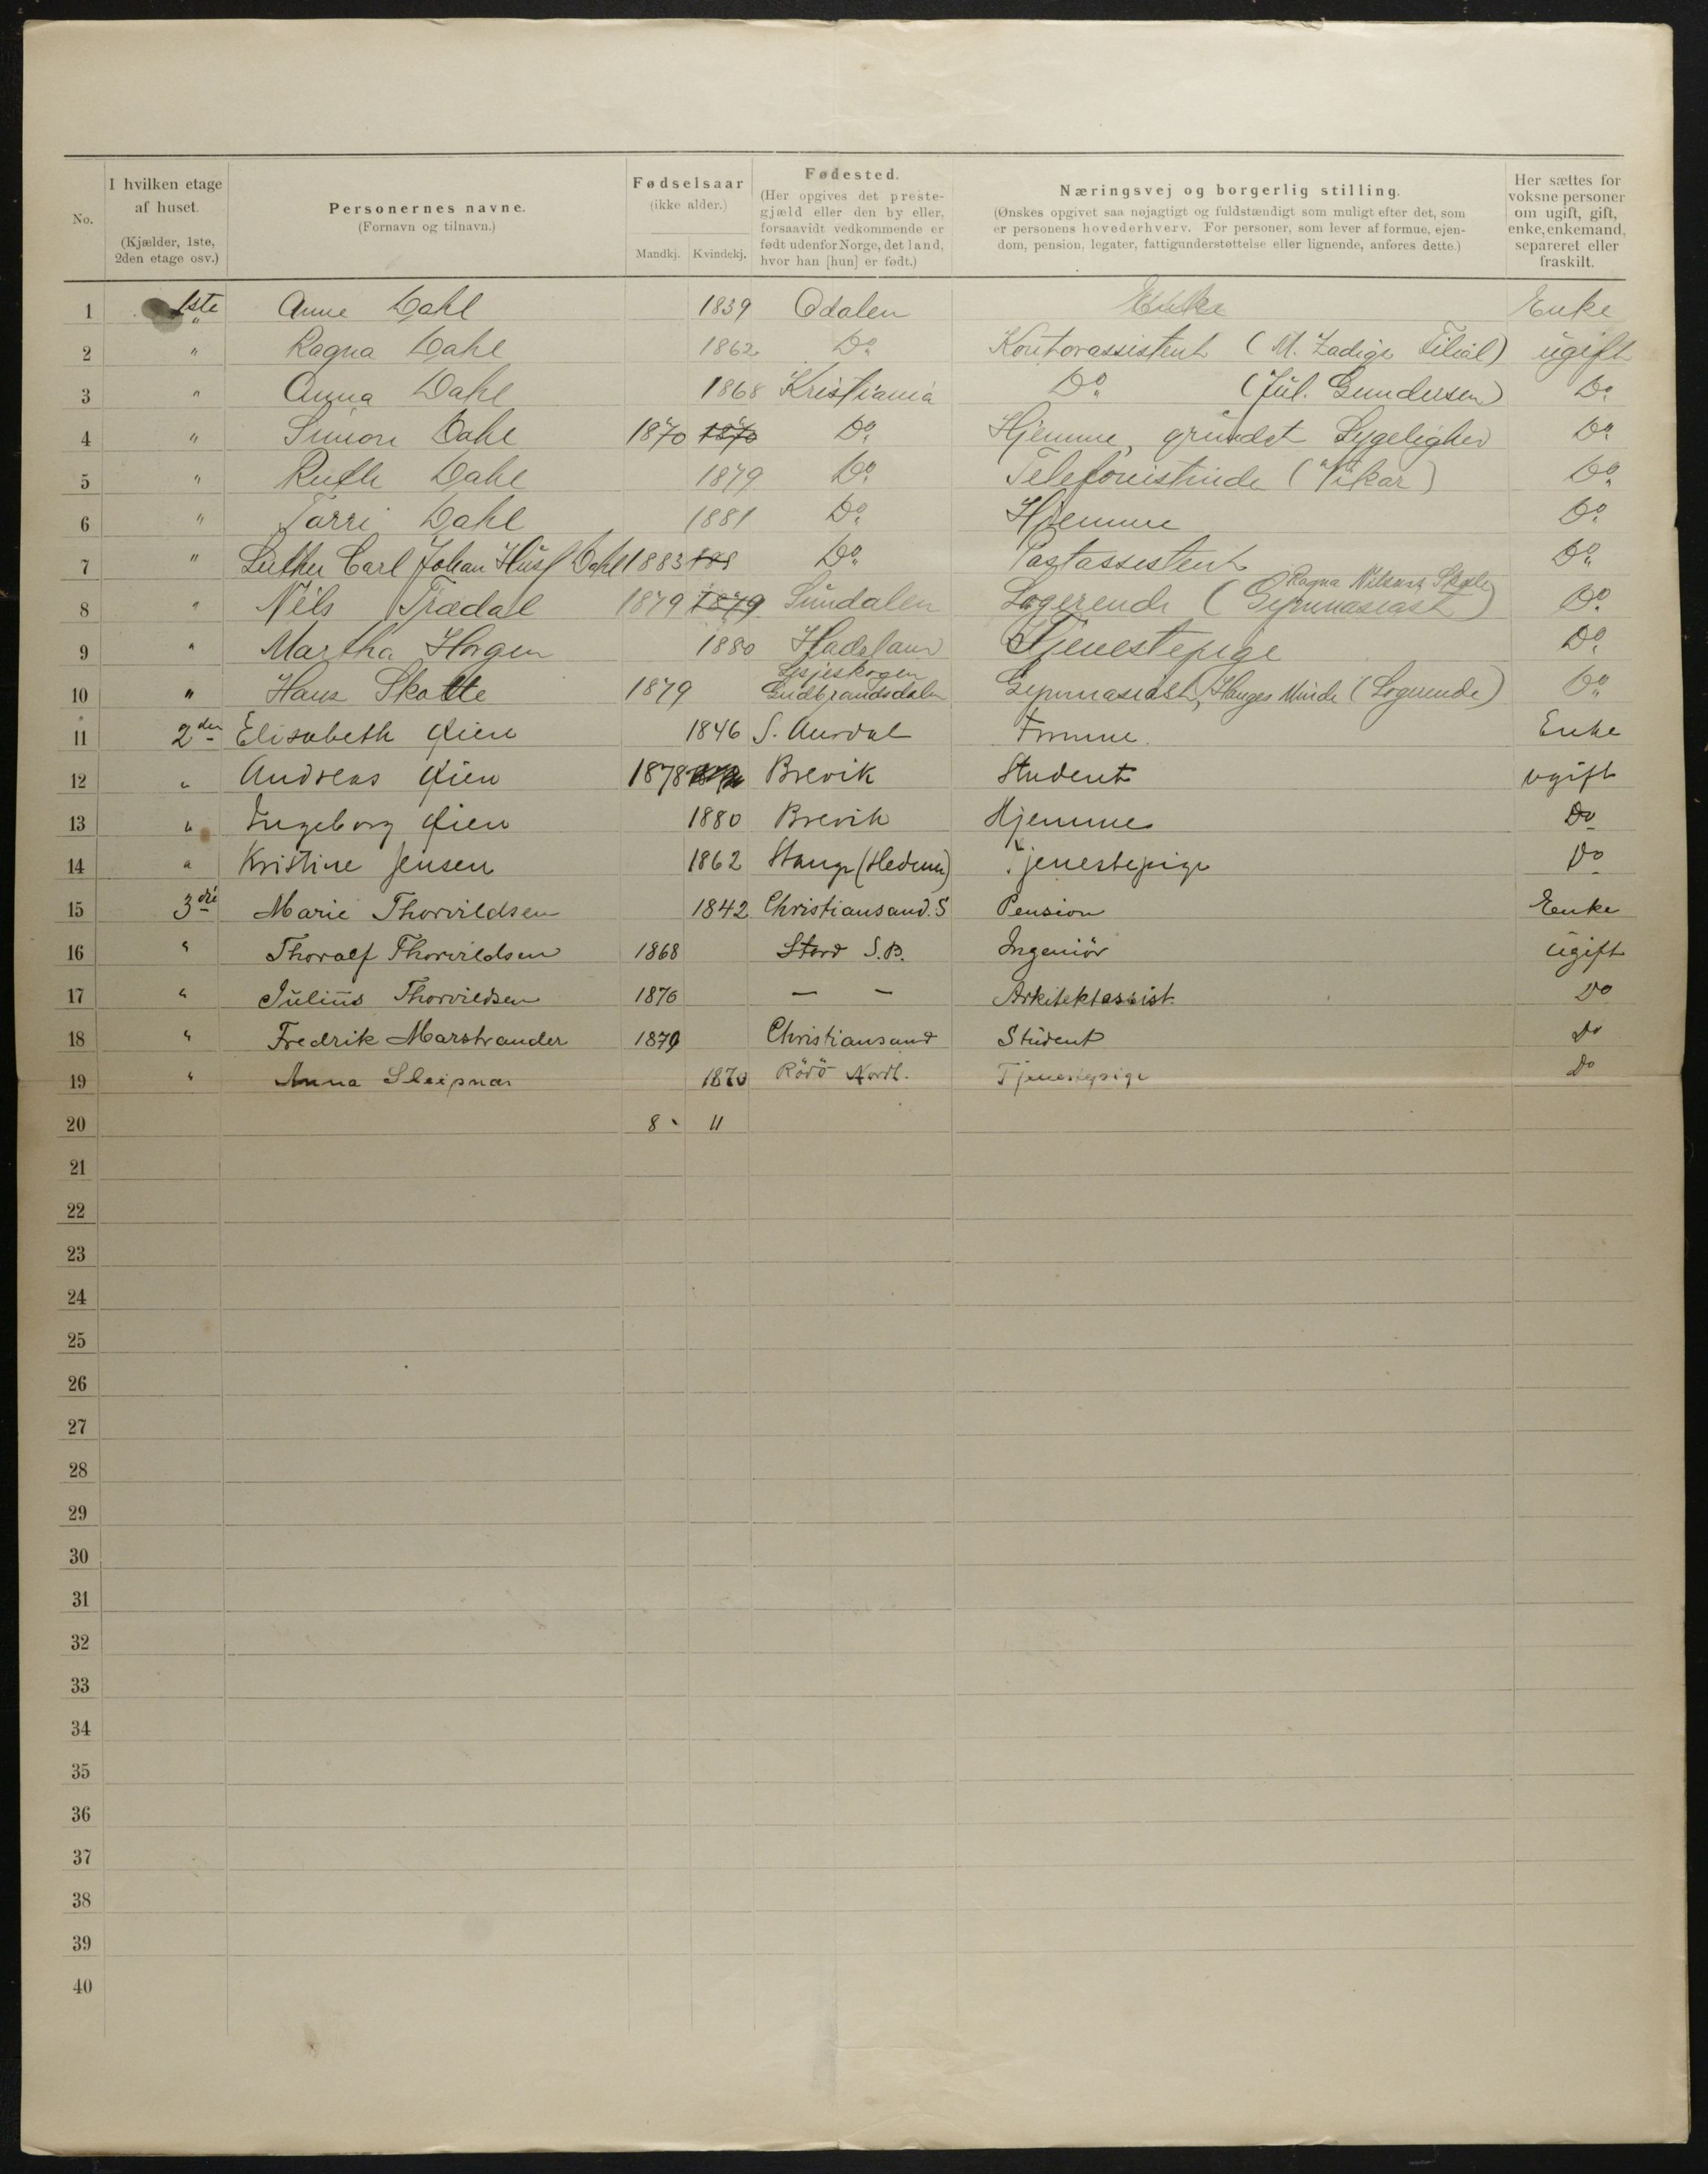 No. | I hvilken etage af huset. (Kjælder, 1ste, 2den etage osv.) | Personernes navne. (Fornavn og tilnavn.) | Fødselsaar (ikke alder.) Mandkj. Kvindekj. | Fødested. (Her opgives det prestegjæld eller den by eller, forsaavidt vedkommende er født udenfor Norge, det land, hvor han [hun] er født.) | Næringsvej og borgerlig stilling. (Ønskes opgivet saa nøjagtigt og fuldstændigt som muligt efter det, som er personens hovederhverv. For personer, som lever af formue, ejendom, pension, legater, fattigunderstøttelse eller lignende, anføres dette.) | Her sættes for voksne personer om ugift, gift, enke, enkemand, separeret eller fraskilt.
1 1ste Anne Dahl 1839 Odalen Enke Enke
2 " Ragna Dahl 1862 Do. Kontorassistent (M. Zadigs Filial) ugift
3 " Anna Dahl 1868 Kristiania Do. (Jul. Gundersen) Do.
4 " Simon Dahl 1870 1870 Do. Hjemme, grundet Sygelighed Do.
5 " Ruth Dahl 1879 Do. Telefonistinde ("Vikar) Do.
6 " Tarri Dahl 1881 Do. Hjemme Do.
7 " Luther Carl Johan Dahl 1883 188 Do. Postassistent Do.
8 " Nils Trædal 1879 1879 Sundalen Logerende (Gymnasiast Ragna Nilsens Skole) Do.
9 " Martha Horgen 1880 Hadeland Tjenestepige Do.
10 " Hans Skotte 1879 Lesjeskogen Gudbrandsdalen Gymnasiast, Hauges Minde (Logerende) Do.
11 2den Elisabeth Øien 1846 S. Aurdal Formue. Enke
12 " Andreas Øien 1878 Brevik Student ugift
13 " Ingeborg Øien 1880 Brevik Hjemme Do
14 " Kristine Jensen 1862 Stange (Hedem) Tjenestepige Do
15 3die Marie Thorvildsen 1842 Christiansand. S Pension Enke
16 " Thoralf Thorvildsen 1868 Stord S.B. Ingeniör ugift
17 " Julius Thorvildsen 1876 — — Arkitektassist. Do
18 " Fredrik Marstrander 1879 Christiansand Student Do
19 " Anna Sleipnæs 1870 Rödö Nordl. Tjenestepige Do
20 8 11
21
22
23
24
25
26
27
28
29
30
31
32
33
34
35
36
37
38
39
40